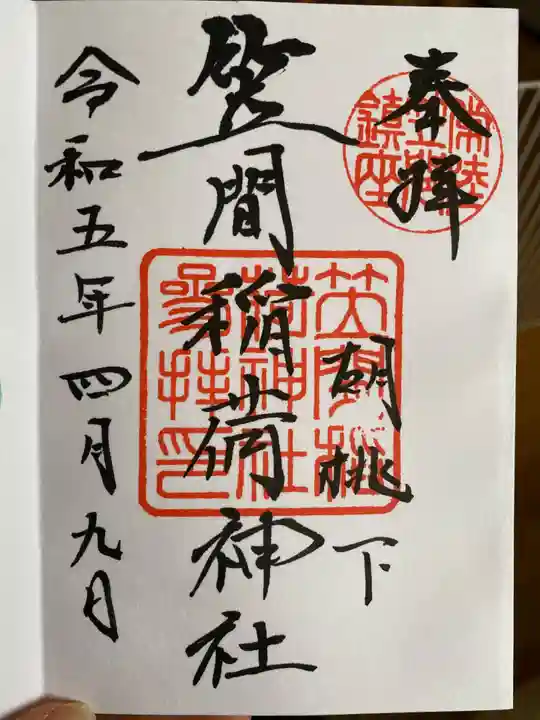 奉拝
胡桃下
笠間稲荷神社
令和五年四月九日
常陸
笠間
鎮座
笠間稲
荷神社
参拝印